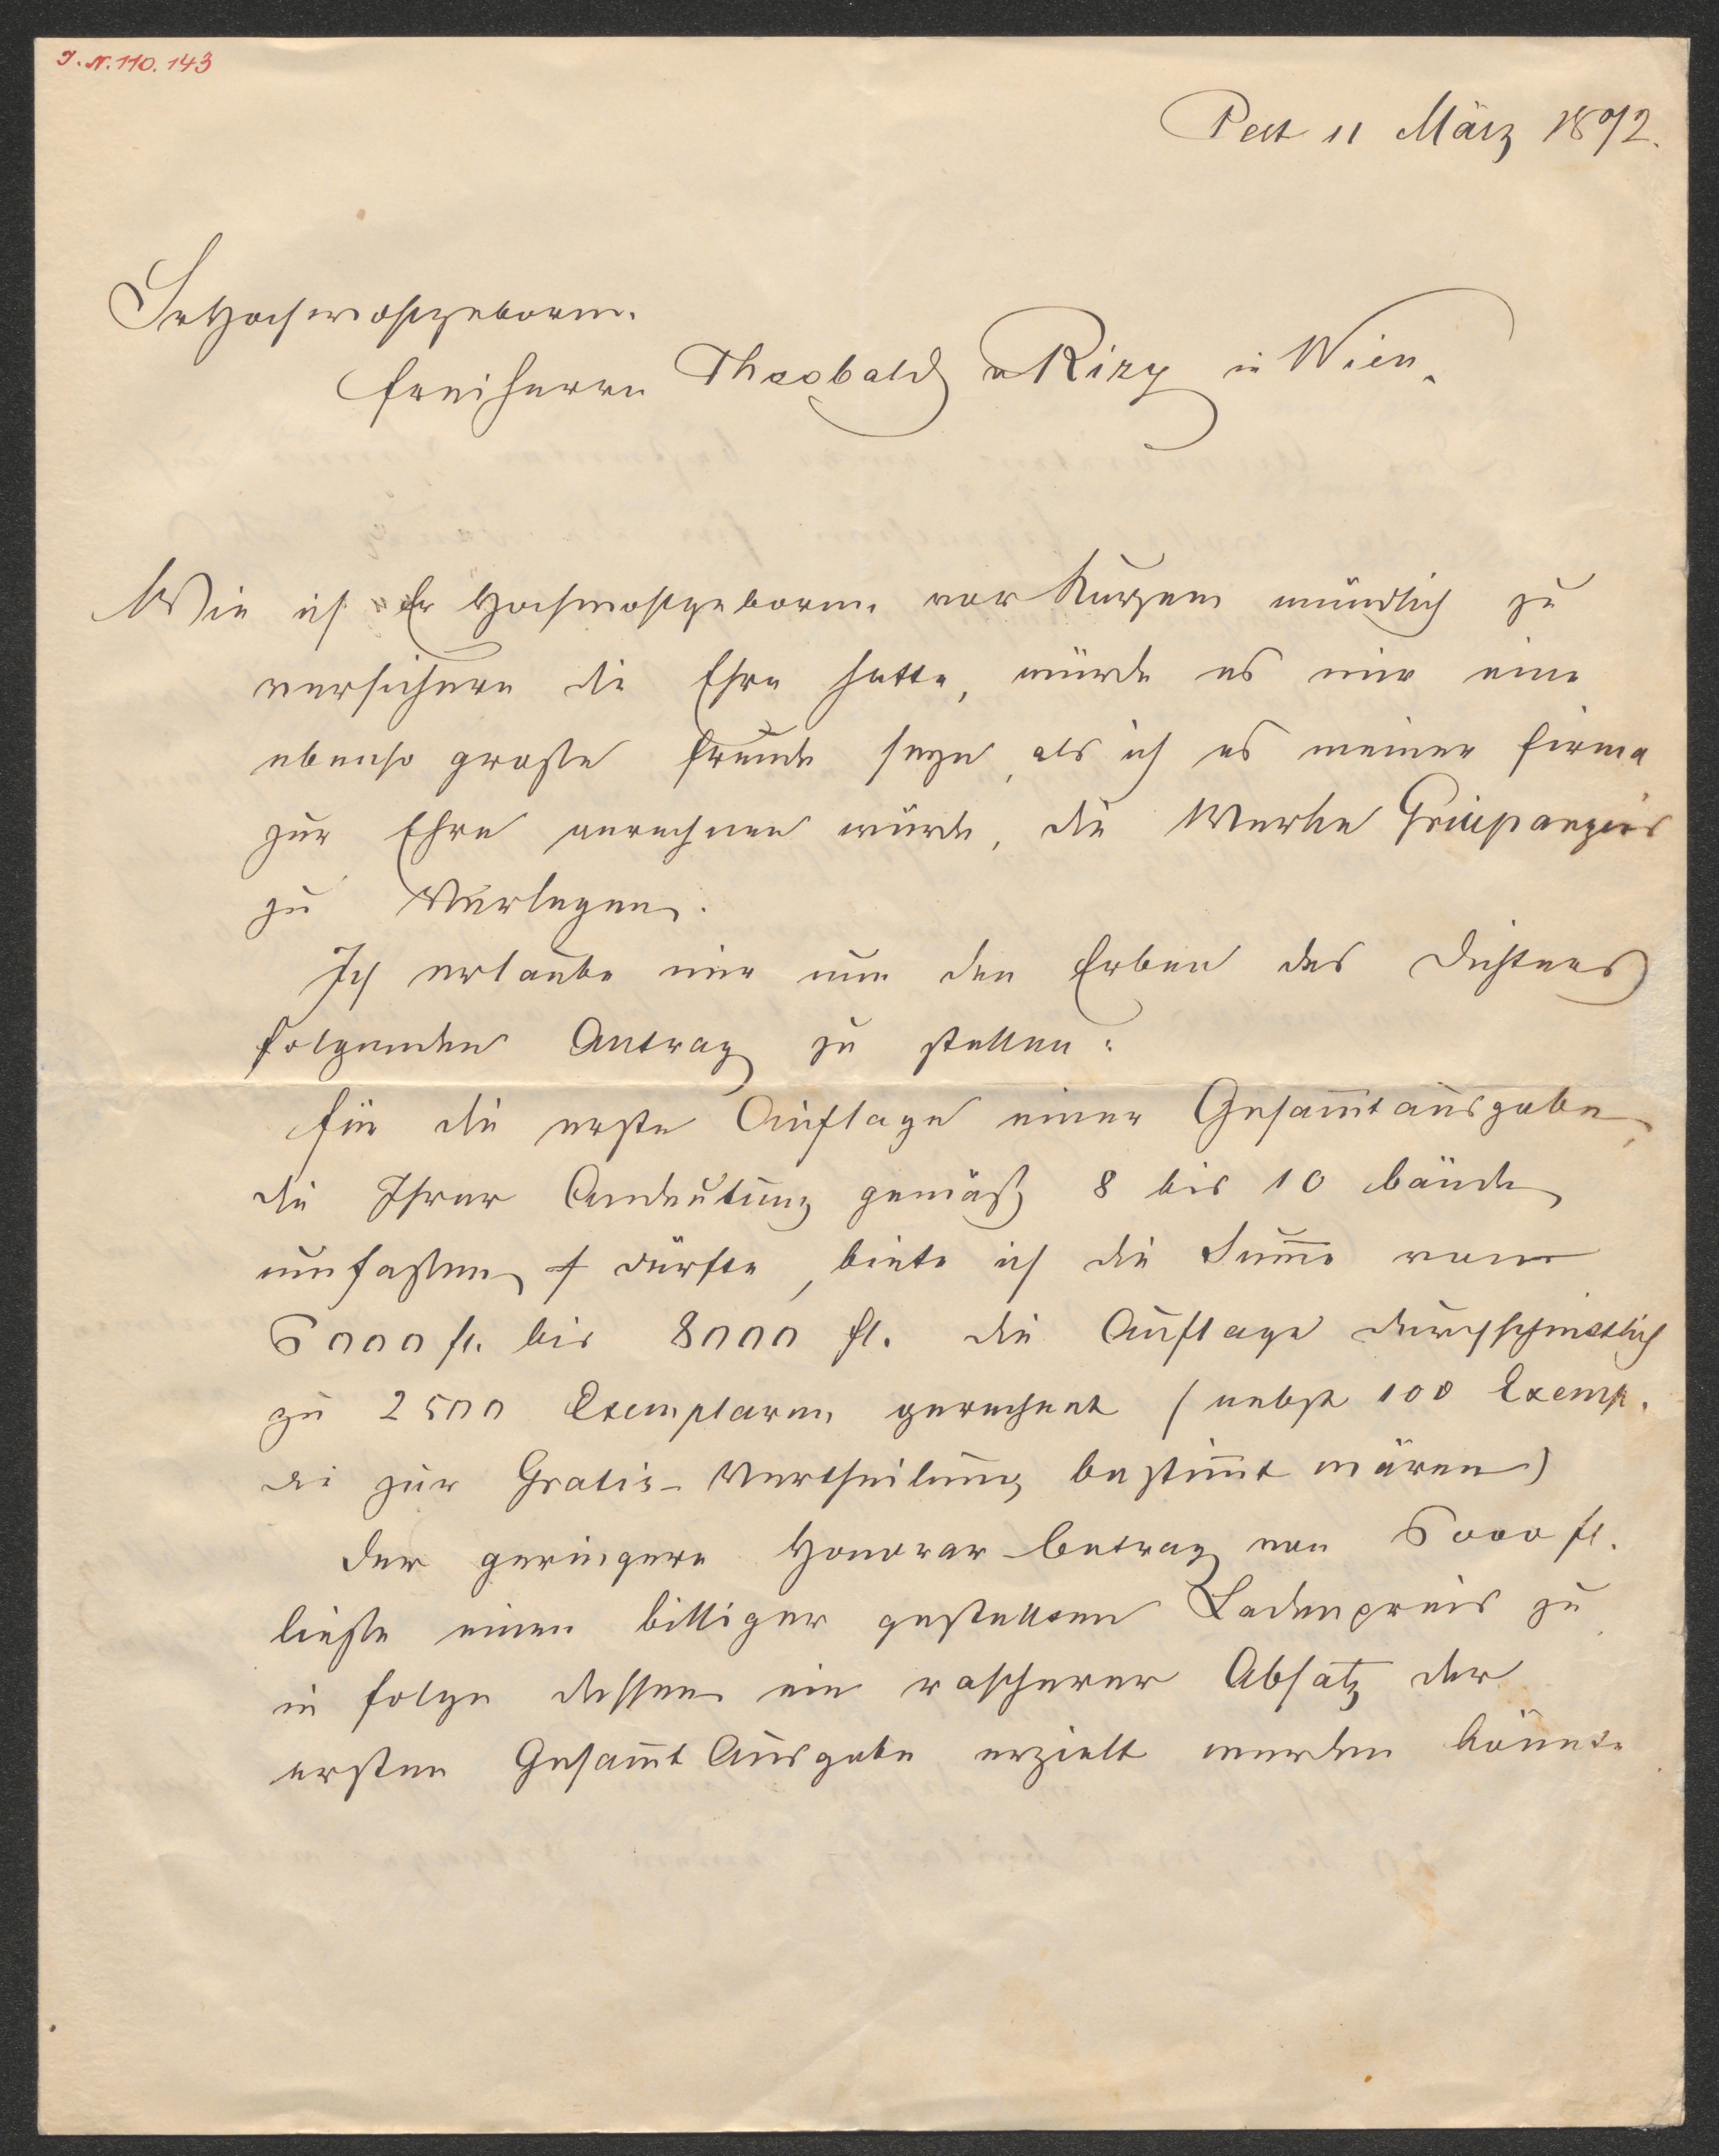 J. N. 110.143
Pest 11 März 1872.
Sr Hochwohlgeboren
Freiherrn Theobald v Rizy in Wien.
Wie ich Er Hochwohlgeboren vor Kurzem mündlich zu
versichern die Ehre hatte, würde es mir eine
ebenso große Freude seyn, als ich es meiner Firma
zur Ehre anrechnen würde, die Werke Grillparzers
zu Verlegen.
Ich erlaube mir nun den Erben des Dichters
folgenden Antrag zu stellen:
Für die erste Auflage einer Gesam̄tausgabe,
die Ihrer Andeutung gemäß 8 bis 10 Bände
umfassen dürfte, biete ich die Sum̄e von
6000 fl. bis 8000 fl. die Auflage durchschnittlich
zu 2500 Exemplaren gerechnet (nebst 100 Exemp.
die zur Gratis-Vertheilung bestim̄t wären)
Der geringere Honorar-Betrag von 6000 fl.
ließe einen billiger gestellten Ladenpreis zu
in folge dessen ein rascherer Absatz der
ersten Gesam̄t Ausgabe erzielt werden könnte